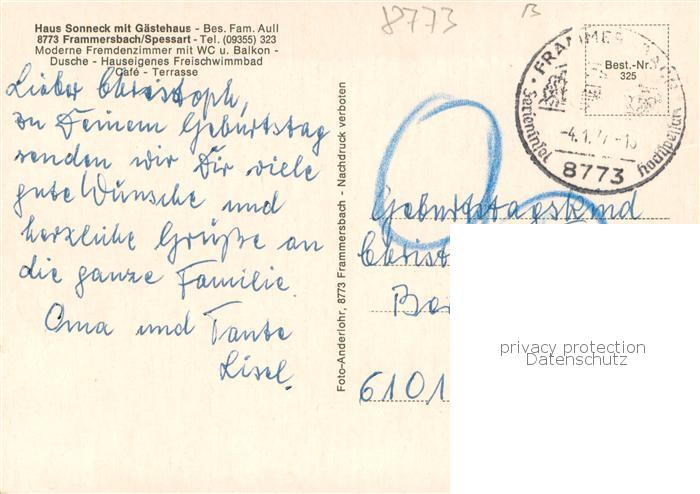 8773
B
Haus Sonneck mit Gästehaus - Bes. Fam. Aull
8773 Frammersbach/Spessart - Tel. (09355) 323
Moderne Fremdenzimmer mit WC u. Balkon -
Dusche - Hauseigenes Freischwimmbad
Café - Terrasse
Lieber Christoph,
zu Deinem Geburtstag
senden wir Dir viele
gute Wünsche und
herzliche Grüße an
die ganze Familie.
Oma und Tante
Lisel.
Foto-Anderlohr, 8773 Frammersbach - Nachdruck verboten
FRAMMERSBACH
Ferieninsel
Hochspessart
-4.1.77-15
8773
Best.-Nr.
325
Geburtstagskind
Christ
6101
privacy protection
Datenschutz